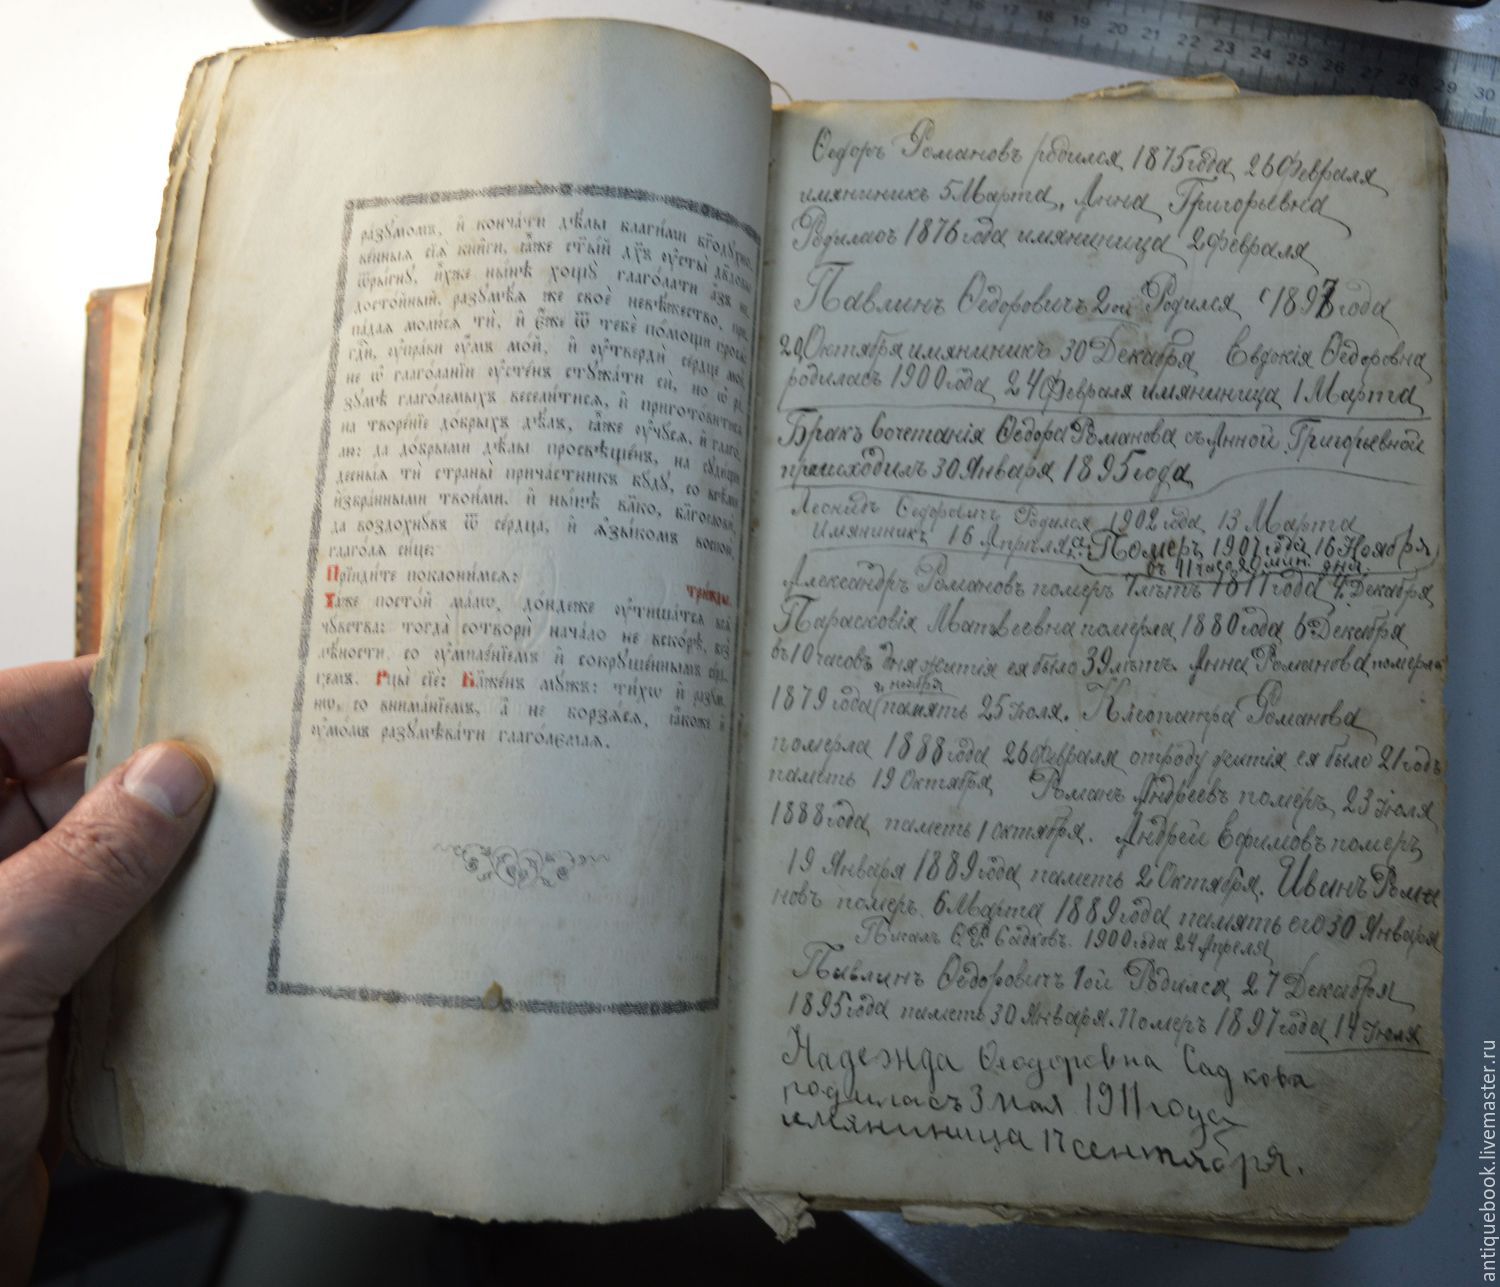 разꙋмомъ, и҆ конча́ти дѣ́лы благи́ми бг҃одꙋхно-
ве́нныѧ сїѧ̀ кни́ги, ꙗ҆̀же ст҃ы́й дх҃ъ ᲂу҆сты̀ дв҃довы
ѿры́гнꙋ, и҆́хже ны́нѣ хощꙋ̀ глаго́лати а҆́зъ не
досто́йный. разꙋмѣ́ѧ же своѐ невѣ́жество, при
па́даѧ молю́сѧ тѝ, и҆ є҆́же ѿ тебѐ по́мощи просѧ̀:
гдⷭ҇и, ᲂу҆пра́ви ᲂу҆́мъ мо́й, и҆ ᲂу҆твердѝ се́рдце моѐ
не ѡ҆ глаго́ланїи ᲂу҆сте́нъ стꙋжа́ти сѝ, но ѡ҆ ра́
зꙋмѣ глаго́лемыхъ весели́тисѧ, и҆ пригото́витисѧ
на творе́нїе до́брыхъ дѣ́лъ, ꙗ҆̀же ᲂу҆чꙋ́сѧ, и҆ глаго́
лю: да до́брыми дѣ́лы просвѣще́нъ, на сꙋди́щи
десны́ѧ тѝ страны̀ прича́стникъ бꙋ́дꙋ, со всѣ́ми
и҆збра́нными твои́ми. и҆ ны́нѣ влⷣко, благословѝ,
да воздохнꙋ́въ ѿ се́рдца, и҆ ѧ҆зы́комъ воспою̀,
глаго́лѧ си́це:
Прїиди́те поклони́мсѧ: три́жды.
Та́же посто́й ма́лѡ, до́ндеже ᲂу҆тиша́тсѧ всѧ̀
чꙋ́вства: тогда̀ сотворѝ нача́ло не вско́рѣ, без̾
лѣ́ности, со ᲂу҆миле́нїемъ и҆ сокрꙋше́ннымъ се́рд-
цемъ. Рцы̀ сїѐ: Блаже́нъ мꙋ́жъ: ти́хѡ и҆ разꙋ́м-
нѡ, со внима́нїемъ, а҆ не борзѧ́сѧ, ꙗ҆́коже и҆
ᲂу҆мо́мъ разꙋмѣва́ти глаго́лемаѧ.
Ѳедоръ Романовъ родился 1875 года 26 Февраля
имяниникъ 5 Марта, Анна Григорьевна
Родилась 1876 года имяниница 2 Февраля
Павлинъ Ѳедоровичъ 2 ой Родился 1897 года
20 Октября имяниникъ 30 Декабря Евдокія Ѳедоровна
родилась 1900 года 24 Февраля имяниница 1 Марта
Бракъ Сочетанія Ѳедора Романова съ Анной Григорьевной
происходилъ 30 Января 1895 года
Леонидъ Ѳедоровичъ Родился 1902 года 13 Марта
Имяниникъ 16 Апреля, Померъ 1907 года 16 Ноября
въ 11 час. 20 мин. дня.
Александръ Романовъ померъ 7 лѣтъ 1811 года 4 Декабря
Парасковія Матвеевна померла 1880 года 6 Декабря
въ 10 часовъ дня житія ея было 39 лѣтъ. Анна Романова померла
1879 года 2 ноября память 25 Іюля. Клеопатра Романова
померла 1888 года 26 Февраля отроду житія ея было 21 годъ
память 19 Октября Романъ Андреевъ померъ 23 Іюля
1888 года память 1 октября. Андрей Ефимовъ померъ
19 Января 1889 года память 2 Октября. Иванъ Рома
новъ померъ 6 Марта 1889 года память его 30 Января
Писалъ Ѳ. Р. Садковъ. 1900 года 24 Апреля
Павлинъ Ѳедоровичъ 1 ой Родился 27 Декабря
1895 года память 30 Января. Померъ 1897 года 14 Іюля
Надежда Ѳеодоровна Садкова
родилась 3 мая 1911 года
имяниница 17 сентября.
17 18 19 20 21 22 23 24 25 26 27 28 29 30
antiquebook.livemaster.ru